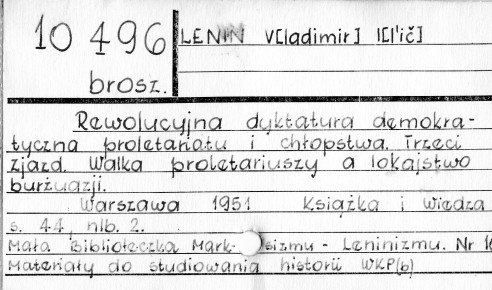 10 496
LENIN V[ladimir] I[l'ič]
brosz.
Rewolucyjna dyktatura demokra-
tyczna proletariatu i chłopstwa. Trzeci
zjazd. Walka proletariuszy a lokajstwo
burżuazji.
Warszawa 1951 Książka i Wiedza
s. 44, nlb. 2.
Mała Biblioteczka Mark- sizmu - Leninizmu. Nr
Materiały do studiowania historii WKP(b)